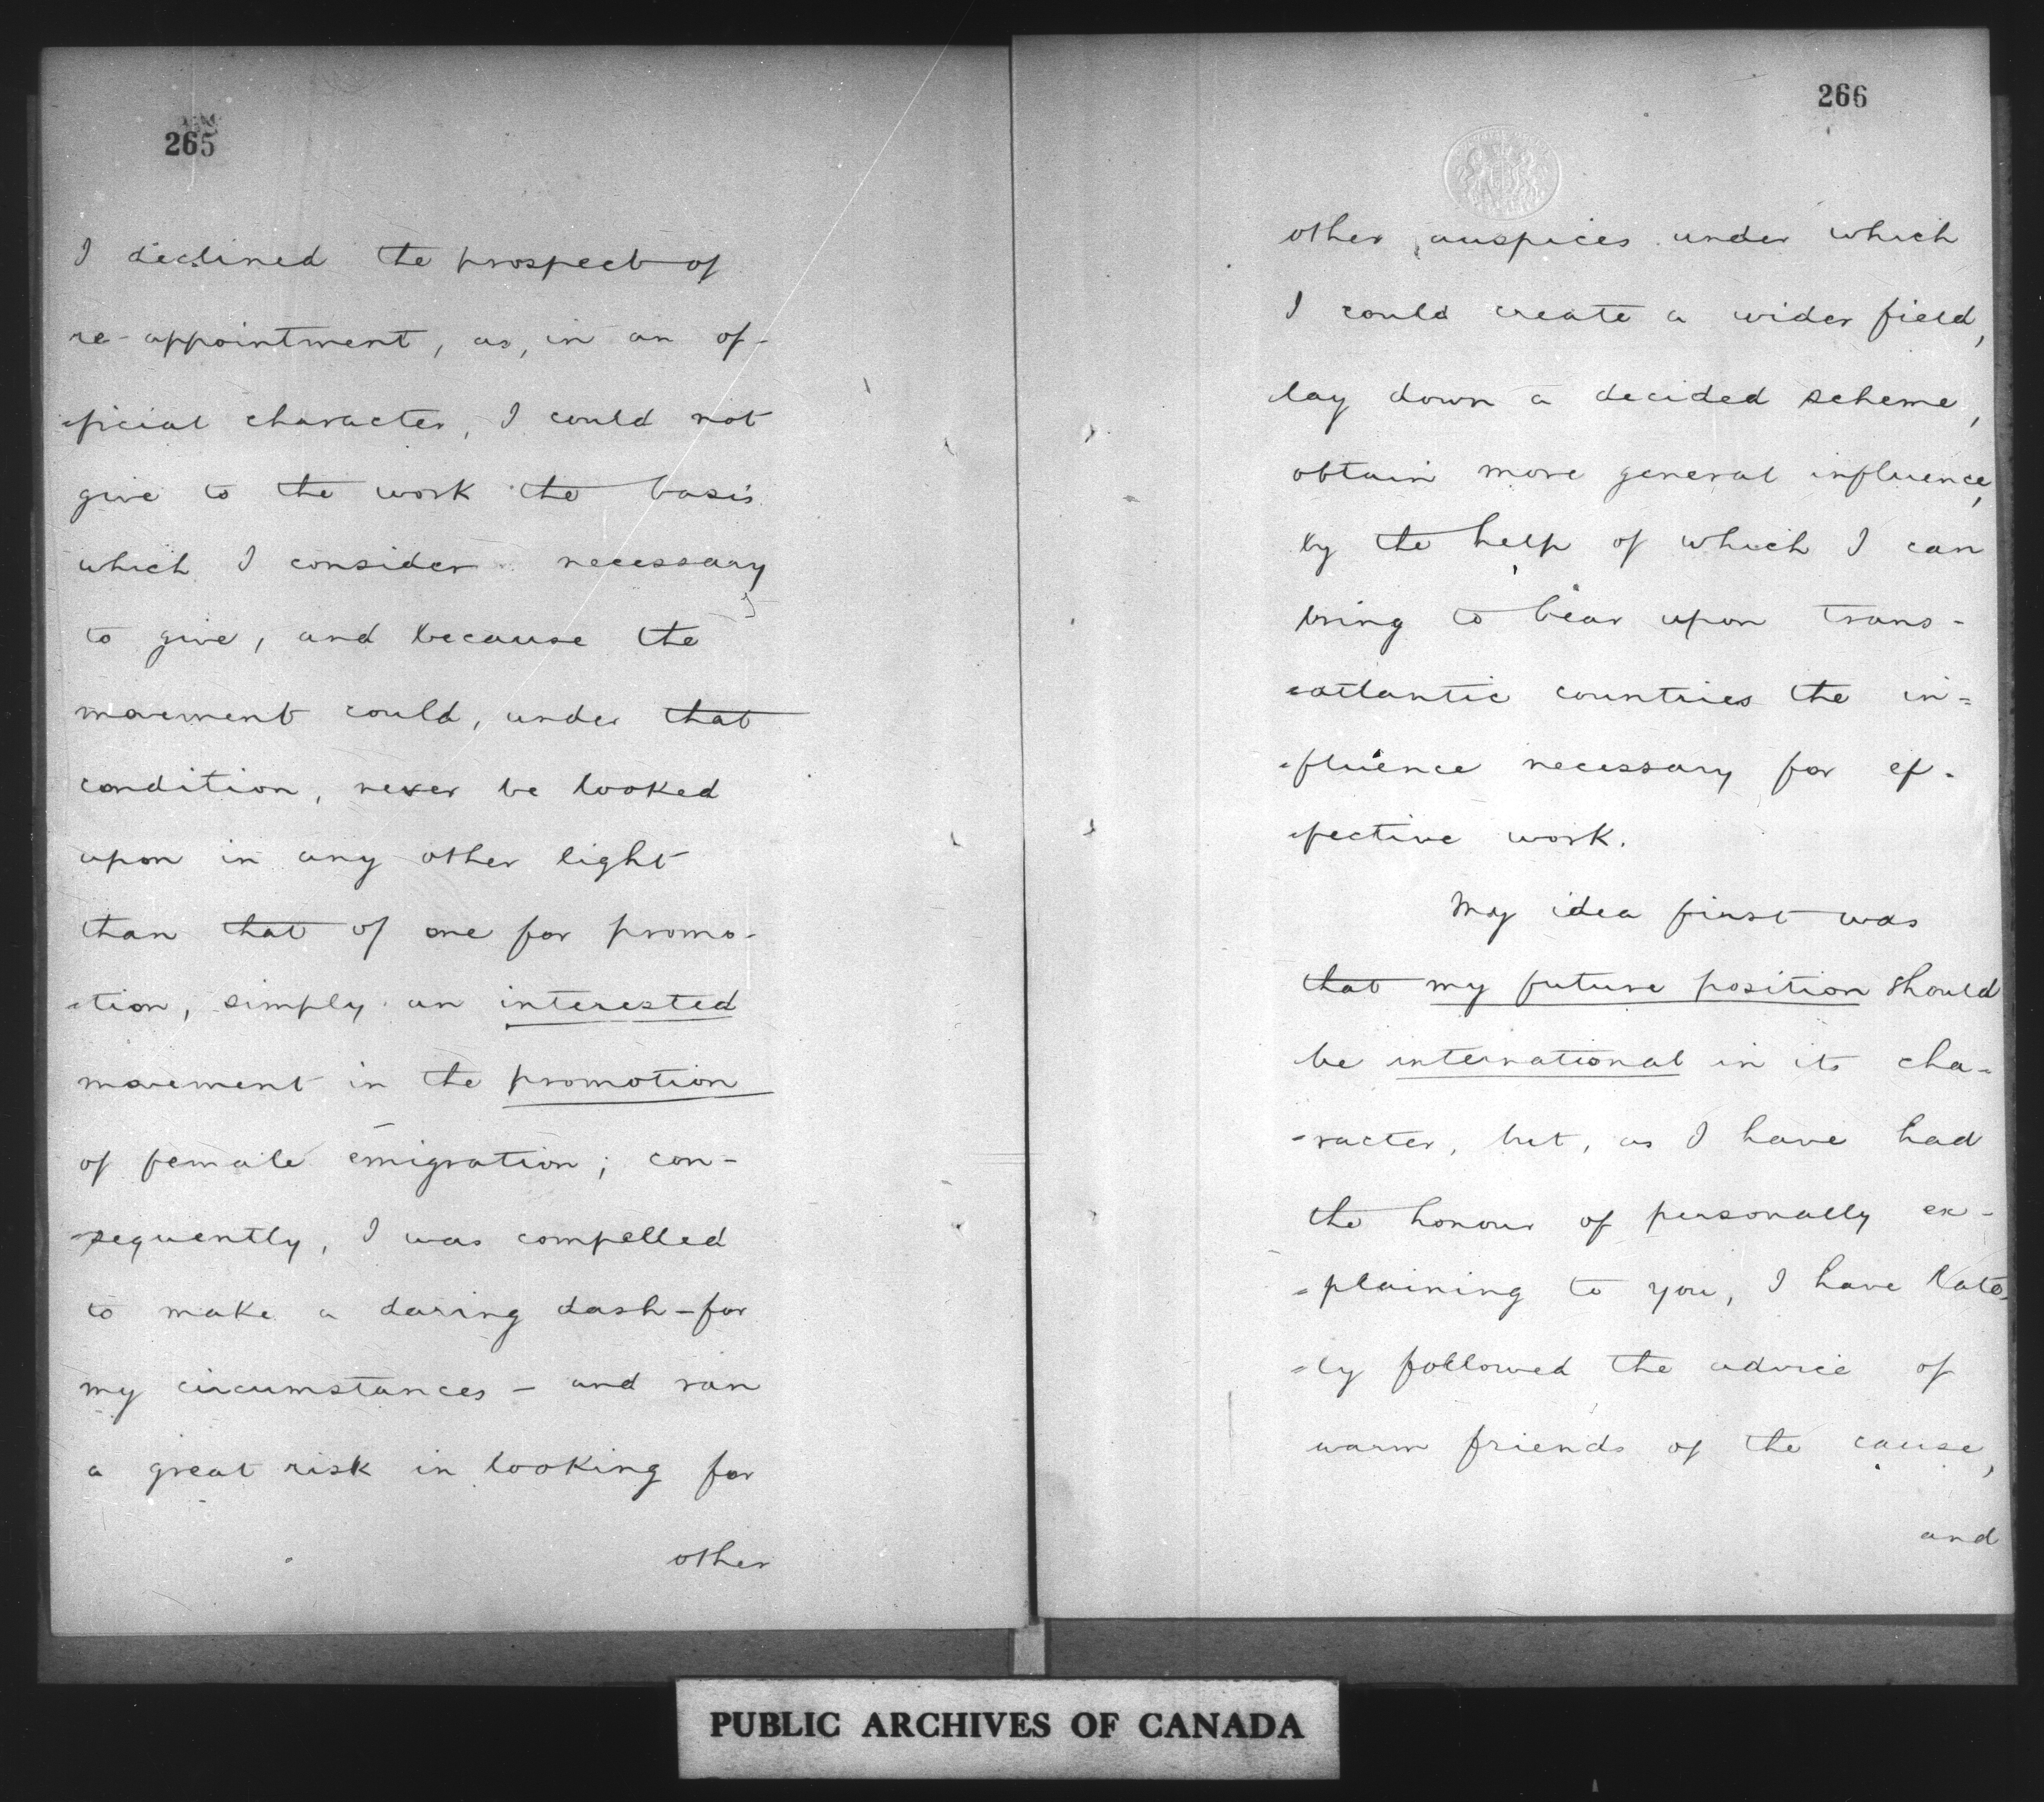 265
I declined the prospect of
re-appointment, as, in an of-
-ficial character, I could not
give to the work the basis
which I consider necessary
to give, and because the
movement could, under that
condition, never be looked
upon in any other light
than that of one for promo-
-tion, simply an interested
movement in the promotion
of female emigration; con-
-sequently, I was compelled
to make a daring dash - for
my circumstances - and ran
a great risk in looking for
other
266
other auspices under which
I could create a wider field,
lay down a decided scheme,
obtain more general influence,
by the help of which I can
bring to bear upon trans-
-atlantic countries the in=
-fluence necessary for ef-
-fective work.
My idea first was
that my future position should
be international in its cha-
-racter, but, as I have had
the honour of personally ex-
=plaining to you, I have late-
=ly followed the advice of
warm friends of the cause,
and
PUBLIC ARCHIVES OF CANADA